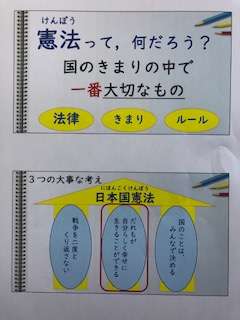 けんぽう
憲法って，何だろう？
国のきまりの中で
一番大切なもの
法律
きまり
ルール
３つの大事な考え
にほんこくけんぽう
日本国憲法
国のことは、
みんなで決める
だれもが
自分らしく幸せに
生きることができる
戦争を二度と
くり返さない